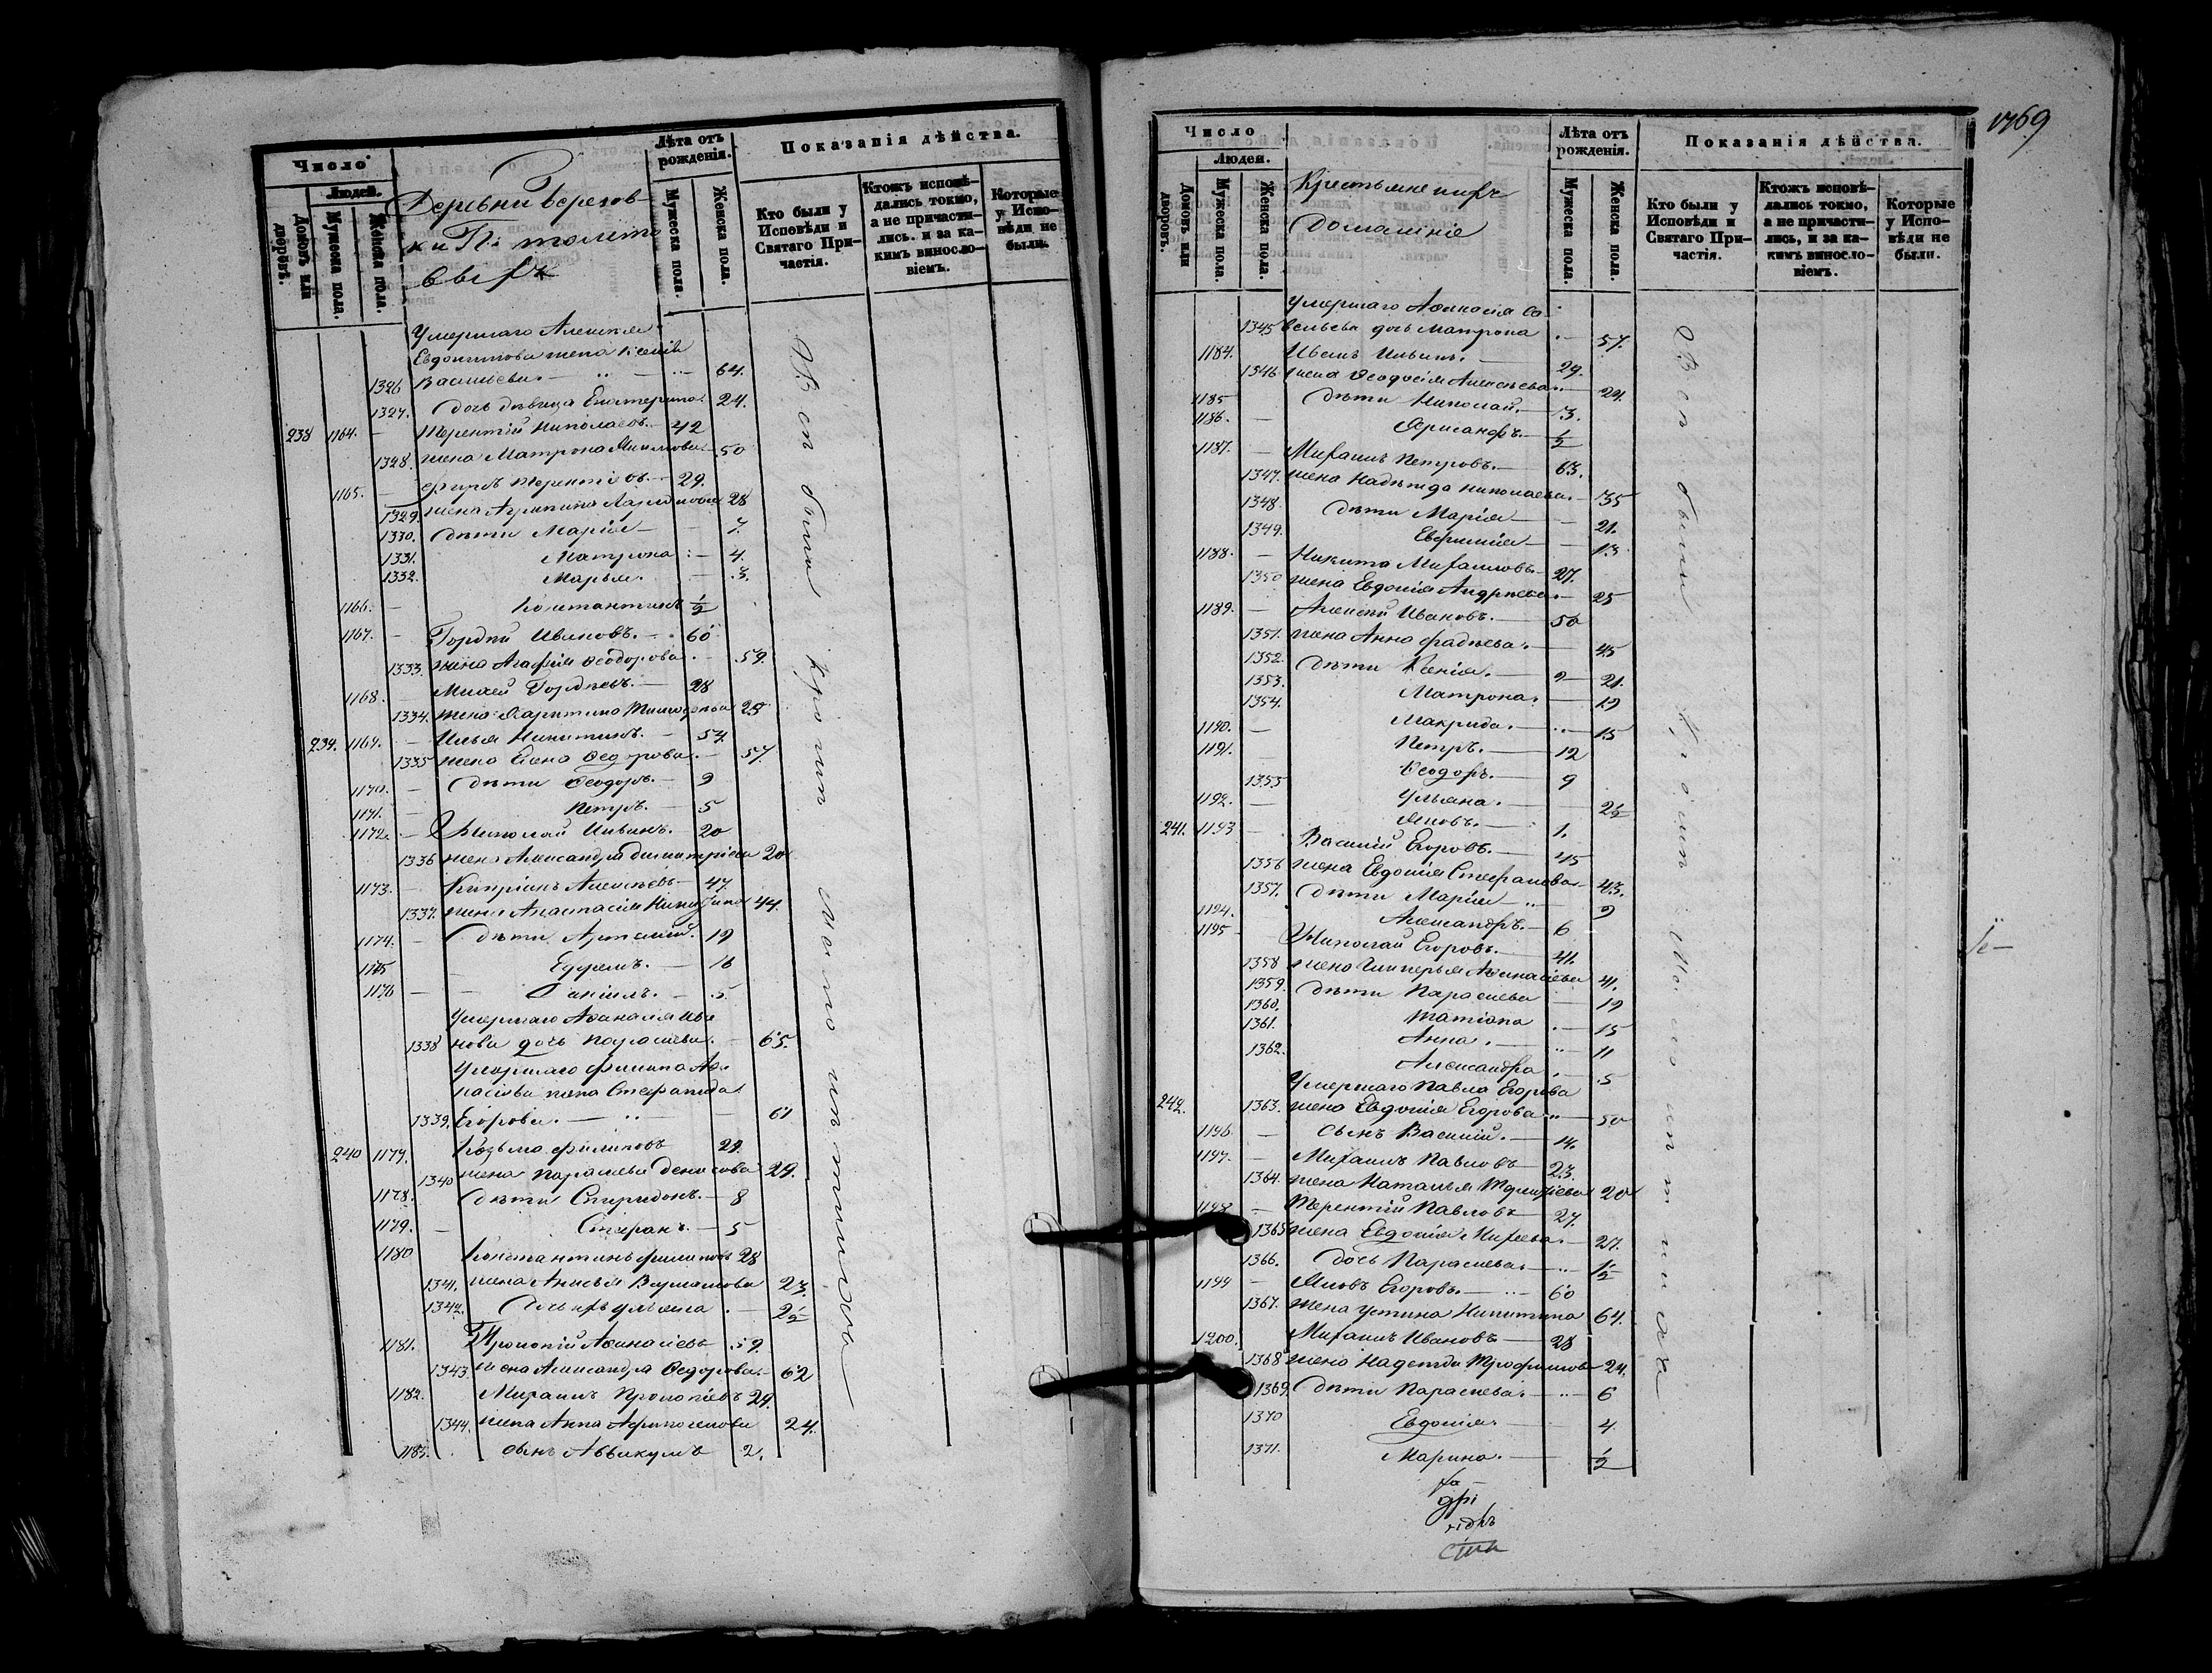 Число
Людей.
Домовъ или дворовъ.
Мужеска пола.
Женска пола.
Деревни Березов-
ки Г:
Лѣта отъ рожденія.
Мужеска пола.
Женска пола.
Показанія дѣйства.
Кто были у Исповѣди и Святаго При-частія.
Ктожъ исповѣ-дались токмо, а не причасти-лись. и за ка-кимъ винословіемъ.
Которые у Испо-вѣди не были.
Умершаго Алексѣя
Евдокимова жена Ксенія
1326 Васильева. 64.
1327. дочь дѣвица Екатерина. 24.
238 1164. Терентій Николаевъ. 42
1328. жена Матрона 50
1165. Терентіевъ. 29.
1329. жена Акулина 28
1330. дѣти Марія 7.
1331. Матрона 4.
1332. Марья. 3.
1166. Константинъ 1/2
1167. Гордѣй Ивановъ. 60
1333. жена Агафія Ѳеодорова 59.
1168. Михей Гордѣевъ. 28
1334. жена Харитина Тимоѳеева 25
239. 1169. Илья Никитинъ. 54
1335 жена Елена Ѳедорова. 57.
1170. дѣти Ѳеодоръ. 9
1171. Петръ. 5
1172. Николай Ильинъ. 20
1336 жена Александра Димитріева 20
1173. Кипріанъ Алексѣевъ 47.
1337. жена Анастасія 44.
1174. дѣти Артемій. 19
1175 Ефремъ. 16
1176 Даніилъ. 5.
Умершаго Аѳанасія Ива
1338 нова дочь Параскева. 65.
Умершаго Филипа Аѳа
насіева жена Стефанида
1339. Егорова. 61
240 1177. Козьма Филиповъ 29.
1340 жена Параскева Денисова 29.
1178. дѣти Спиридонъ. 8
1179. Стефанъ. 5
1180 Константинъ Филиповъ 28
1341. жена Анисья Варламова 23.
1342. дочь Ульяна 2 1/2
1181. Прокопій Аѳанасіевъ 59.
1343. жена Александра Ѳедорова. 62
1182. Михаилъ Прокопіевъ 29.
1344. жена Анна Афиногенова 24.
1183. сынъ Аввакумъ 2.
Всѣ были кромѣ малолѣтнихъ
1769
Число
Людей.
Домовъ или дворовъ.
Мужеска пола.
Женска пола.
Крестьяне ихъ
Домашніе
Лѣта отъ рожденія.
Мужеска пола.
Женска пола.
Показанія дѣйства.
Кто были у Исповѣди и Святаго При-частія.
Ктожъ исповѣ-дались токмо, а не причасти-лись, и за ка-кимъ винословіемъ.
Которые у Испо-вѣди не были.
Умершаго Аѳанасія Са-
1345 вельева дочь Матрона 57.
1184. Иванъ Ильинъ. 29.
1346 жена Ѳеодосія Алексѣева. 24
1185 дѣти Николай. 3.
1186. Хрисанфъ. 1/2
1187. Михаилъ Петровъ. 63.
1347. жена Надежда Николаева. 35
1348. дѣти Марія 21.
1349. Евфимія 13
1188. Никита Михаиловъ 27.
1350 жена Евдокія Андреева. 25
1189. Алексѣй Ивановъ. 50
1351. жена Анна Фадѣева. 45
1352. дѣти Ксенія. 21.
1353. Матрона. 19
1354. Макрида. 15
1190. Петръ. 12
1191. Ѳеодоръ. 9
1355 Ульяна. 2 1/2
1192. Яковъ. 1.
241. 1193 Василій Егоровъ. 45
1356 жена Евдокія Стефанова. 43.
1357. дѣти Марія 9
1194. Александръ. 6
1195 Николай Егоровъ. 41.
1358 жена Гликерья Аѳанасіева 41.
1359. дѣти Параскева 19
1360. Татіана 15
1361. Анна. 11
1362. Александра 5
Умершаго Павла Егорова
242. 1363. жена Евдокія Егорова 50
1196 сынъ Василій. 14.
1197. Михаилъ Павловъ 23.
1364. жена Наталья 20
1198 Терентій Павловъ 27.
1365 жена Евдокія Михеева. 27.
1366. дочь Параскева. 1 1/2
1199 Яковъ Егоровъ. 60
1367. жена Устина Никитина 64.
1200. Михаилъ Ивановъ 28
1368 жена Надежда Трофимова 24.
1369. дѣти Параскева. 6
1370 Евдокія 4
1371. Марина. 1/2
Всѣ были кромѣ малолѣтнихъ